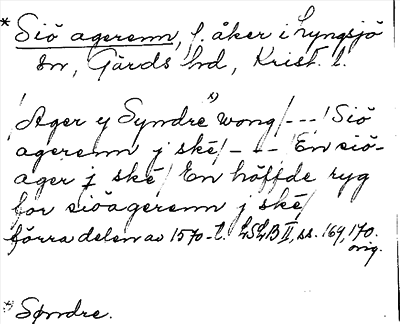 * Siö agerenn, f. åker i Lyngsjö
sn, Gärds hd, Krist. l.
/Ager y Syndre *) wong/---/Siö
agerenn j skë/---/En siö-
ager j skë/ En höffde ryg
for siöagerenn j skë/
förra delen av 1570-t. LSLB II, ss. 169, 170.
orig.
*) Søndre.